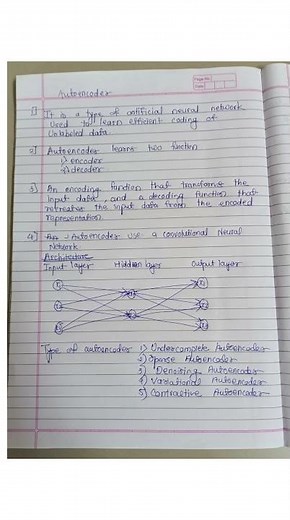 Page No.
Date
Autoencoder
1] It is a type of artificial neural network
Used to learn efficient coding of
Unlabeled data.
2] Autoencoder learns two function
1) encoder
2) decoder
3) An encoding function that transforms the
input data, and a decoding function that
recreates the input data from the encoded
representation.
4] Autoencoder use a convolutional Neural
Network.
Architecture
Input layer Hidden layer Output layer
Type of autoencoder 1) Undercomplete Autoencoder
2) Sparse Autoencoder
3) Denoising Autoencoder
4) Variational Autoencoder
5) Contractive Autoencoder